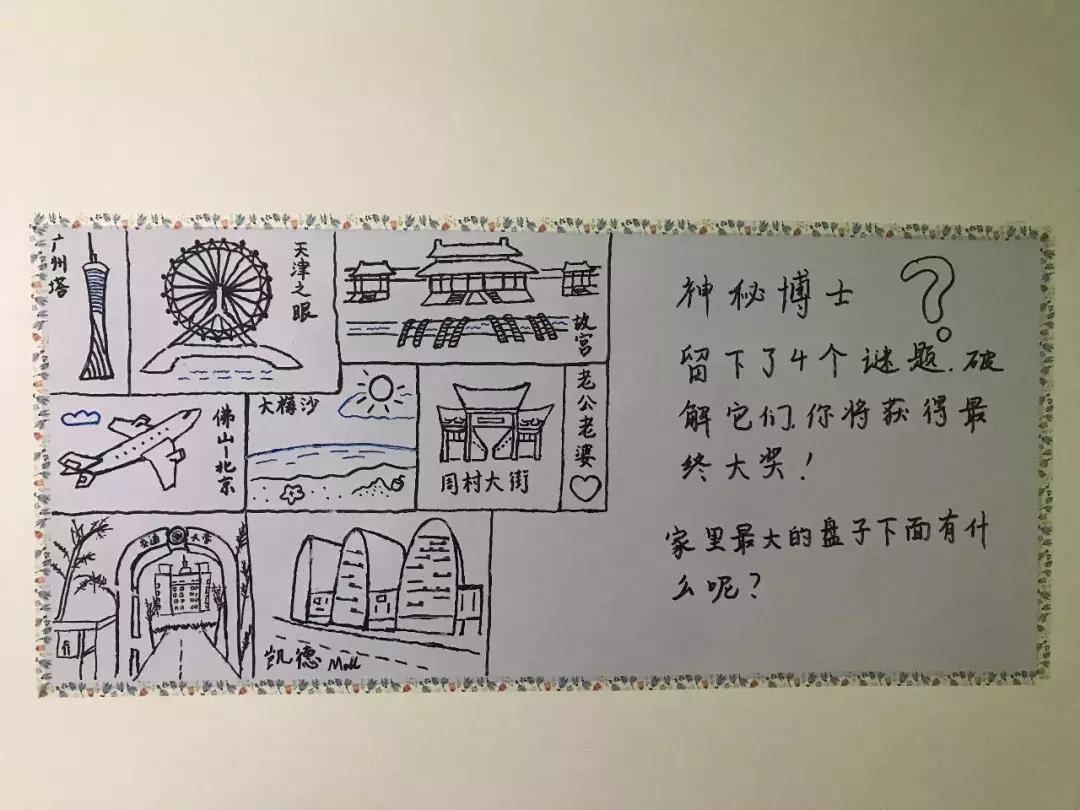 广州塔
天津之眼
故宫
佛山-北京
大梅沙
周村大街
老公老婆
交通大学
凯德Mall
神秘博士
留下了4个谜题.破
解它们,你将获得最
终大奖!
家里最大的盘子下面有什
么呢?